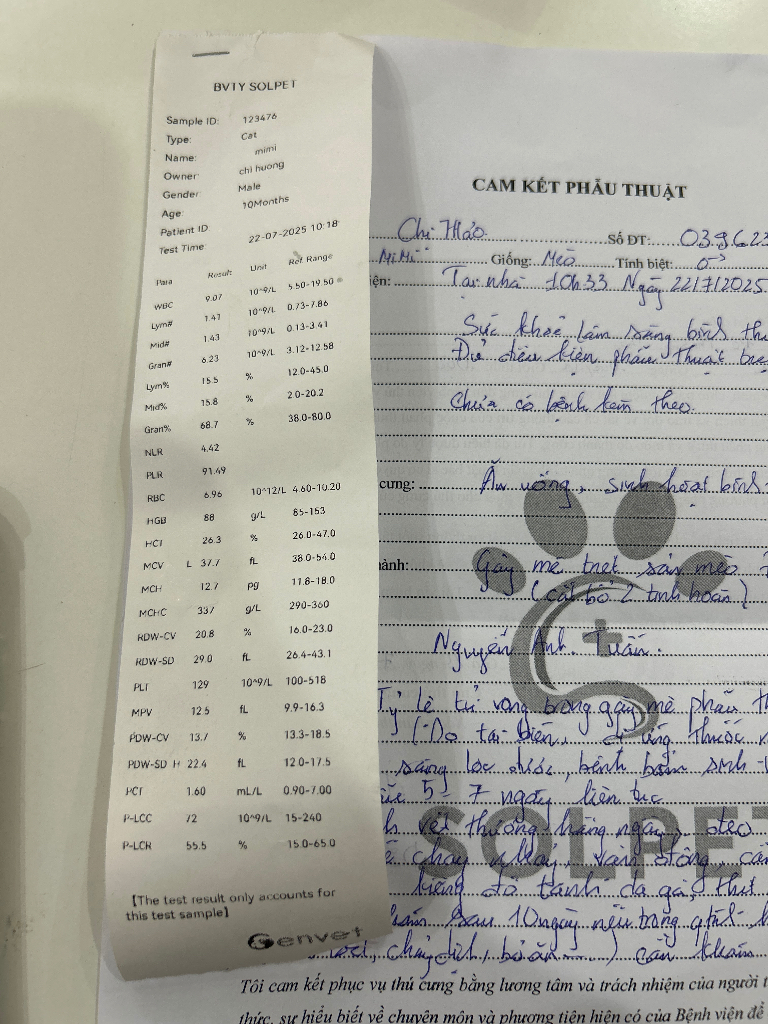 BVTY SOLPET
Sample ID: 123476
Type: Cat
Name: mimi
Owner: chi huong
Gender: Male
Age: 10Months
Patient ID
Test Time: 22-07-2025 10:18
Para Result Unit Ref. Range
WBC 9.07 10^9/L 5.50-19.50
Lym# 1.41 10^9/L 0.73-7.86
Mid# 1.43 10^9/L 0.13-3.41
Gran# 6.23 10^9/L 3.12-12.58
Lym% 15.5 % 12.0-45.0
Mid% 15.8 % 2.0-20.2
Gran% 68.7 % 38.0-80.0
NLR 4.42
PLR 91.49
RBC 6.96 10^12/L 4.60-10.20
HGB 88 g/L 85-153
HCT 26.3 % 26.0-47.0
MCV L 37.7 fL 38.0-54.0
MCH 12.7 pg 11.8-18.0
MCHC 337 g/L 290-360
RDW-CV 20.8 % 16.0-23.0
RDW-SD 29.0 fL 26.4-43.1
PLT 129 10^9/L 100-518
MPV 12.5 fL 9.9-16.3
PDW-CV 13.7 % 13.3-18.5
PDW-SD H 22.4 fL 12.0-17.5
PCT 1.60 mL/L 0.90-7.00
P-LCC 72 10^9/L 15-240
P-LCR 55.5 % 15.0-65.0
[The test result only accounts for
this test sample]
Genvet
CAM KẾT PHẪU THUẬT
Chị Hảo Số ĐT: 039623
MiMi Giống: Mèo Tính biệt: ♂
iện: Tại nhà 10h33 Ngày 22/7/2025
Sức khoẻ lâm sàng bình thư
Đủ điều kiện phẫu thuật
Chưa có bệnh kèm theo.
cưng: Ăn uống, sinh hoạt bình
ành: Gây mê triệt sản mèo
(cắt bỏ 2 tinh hoàn)
Nguyễn Anh Tuấn.
Tỷ lệ tử vong trong gây mê phẫu th
(Do tai biến, dị ứng thuốc
sàng lọc được, bệnh bẩm sinh
5-7 ngày liên tục
vết thương hàng ngày, đeo
chạy nhảy, vận động,
kiêng đồ tanh da gà, thịt
sau 10 ngày nếu trong qtrình
chảy dịch, bỏ ăn ...) cần khám
SOLPET
Tôi cam kết phục vụ thú cưng bằng lương tâm và trách nhiệm của người t
thức, sự hiểu biết về chuyên môn và phương tiện hiện có của Bệnh viện để